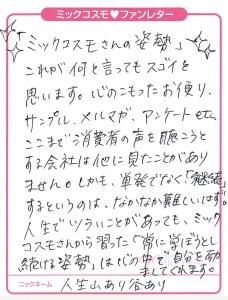 ミックコスモ♥ファンレター
「ミックコスモさんの姿勢」
これが何と言ってもスゴイと
思います。心のこもったお便り、
サンプル、メルマガ、アンケートetc、
ここまで消費者の声を聴こうと
する会社は他に見たことがあり
ません。しかも、単発でなく「継続」
するというのは、なかなか難しいはず。
人生でツラいことがあっても、ミック
コスモさんから習った「常に学ぼうとし
続ける姿勢」は心の中で自分を励
ましてくれます。
ニックネーム 人生山あり谷あり